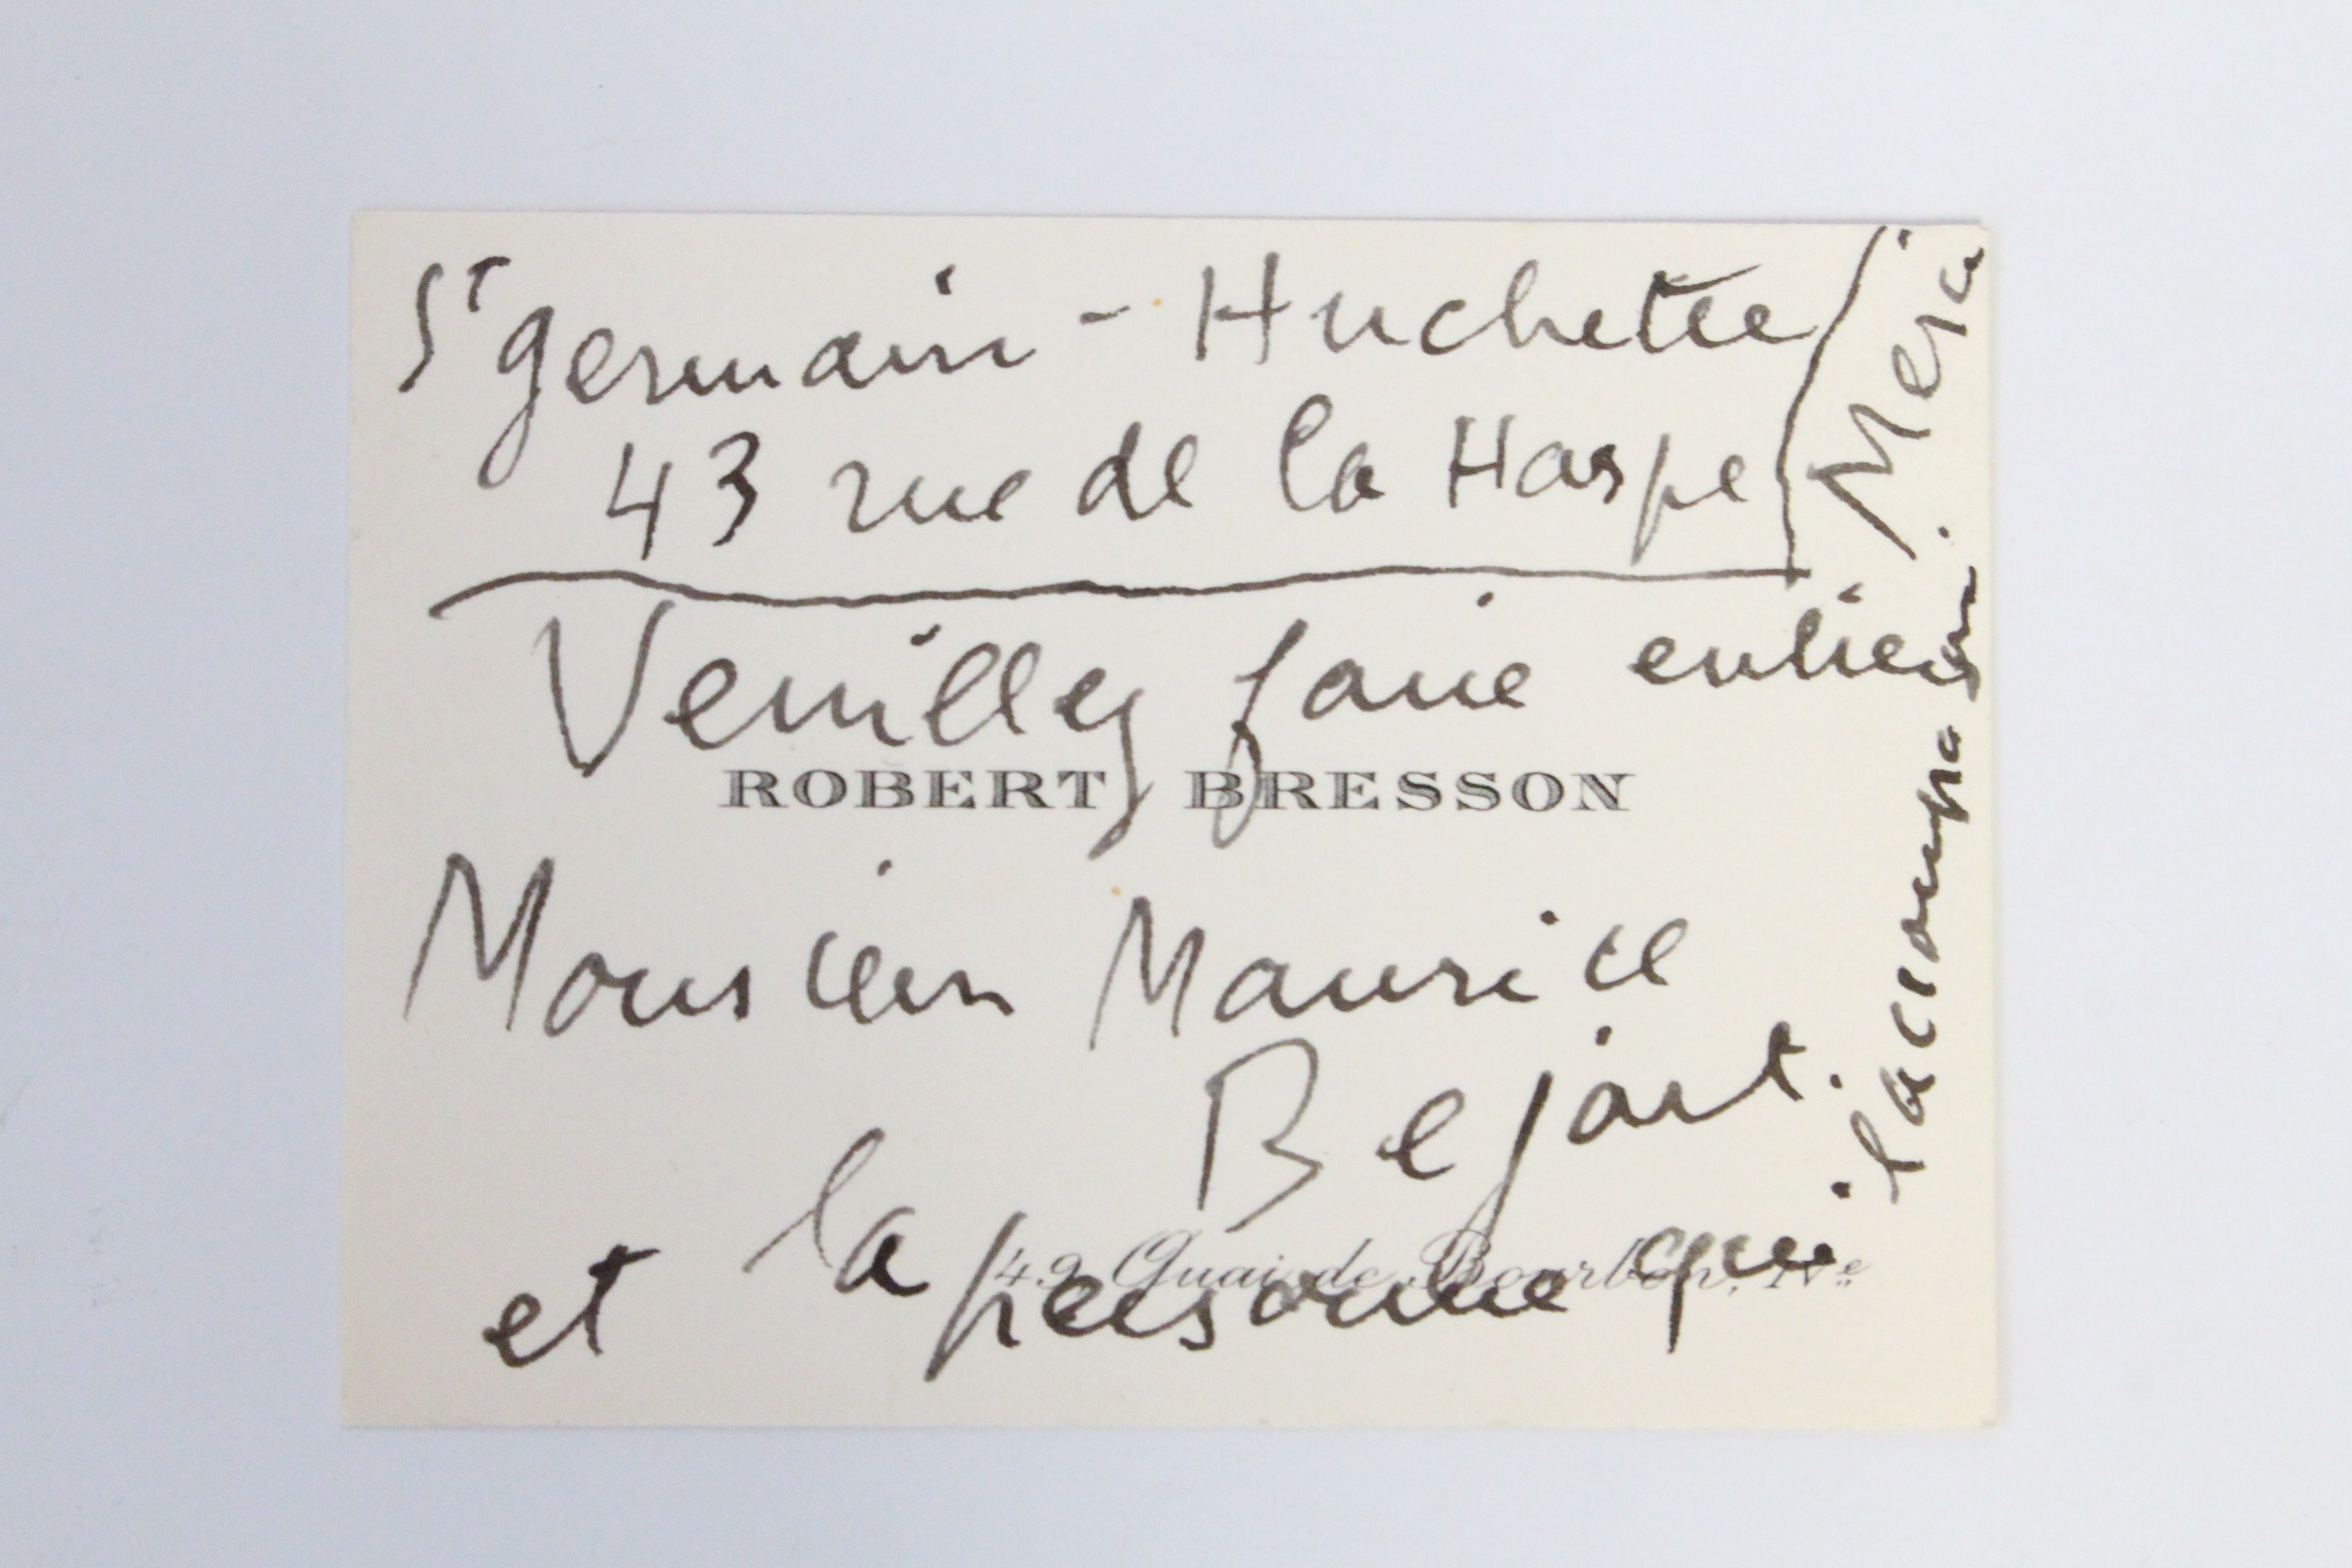 St germain - Huchette
43 rue de la Harpe
Veuillez faire entrer
ROBERT BRESSON
Monsieur Maurice
Bejart.
et la personne qui
49, Quai de Bourbon, IVe
l'accompagne.
Merci